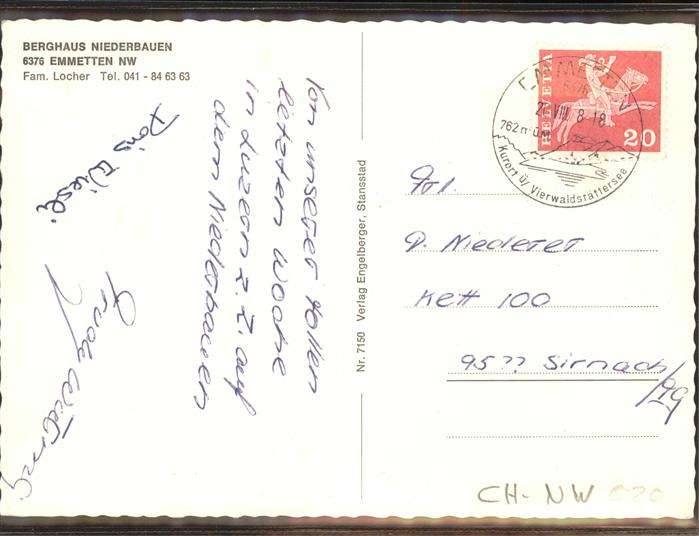 BERGHAUS NIEDERBAUEN
6376 EMMETTEN NW
Fam. Locher Tel. 041 - 84 63 63
Von unserer tollen
letzten Woche
in Luzern z. Z. auf
dem Niederbauen
Doris Wiesli
Nr. 7150 Verlag Engelberger, Stansstad
EMMETTEN
6376
VIII. 8-18
762 m ü.M.
Kurort ü/ Vierwaldstättersee
HELVETIA
20
Frl.
P. Niederer
Kett 100
95?? Sirnach/TG
CH-NW